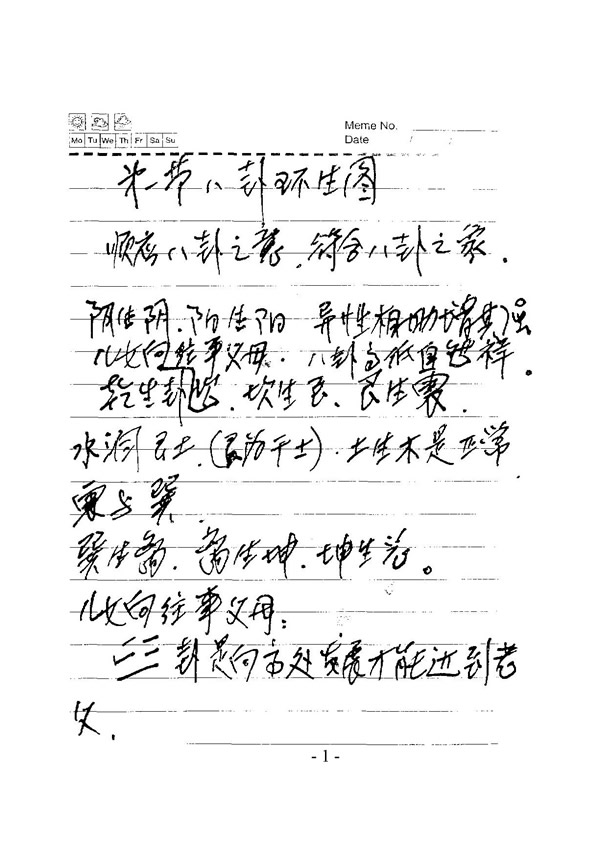 Meme No.
Mo Tu We Th Fr Sa Su
Date / /
第一节八卦环生图
顺应八卦之意.符合八卦之家.
阴生阴.阳生阳 异性相助增其强
儿女向往事父母.八卦高低自然祥。
乾生卦.坎生艮、艮生震.
水润艮土.(艮为干土).土生木是正常
震与巽.
巽生离.离生坤.坤生兑。
儿女向往事父母:
卦是向高处发展才能达到老
父.
- 1 -